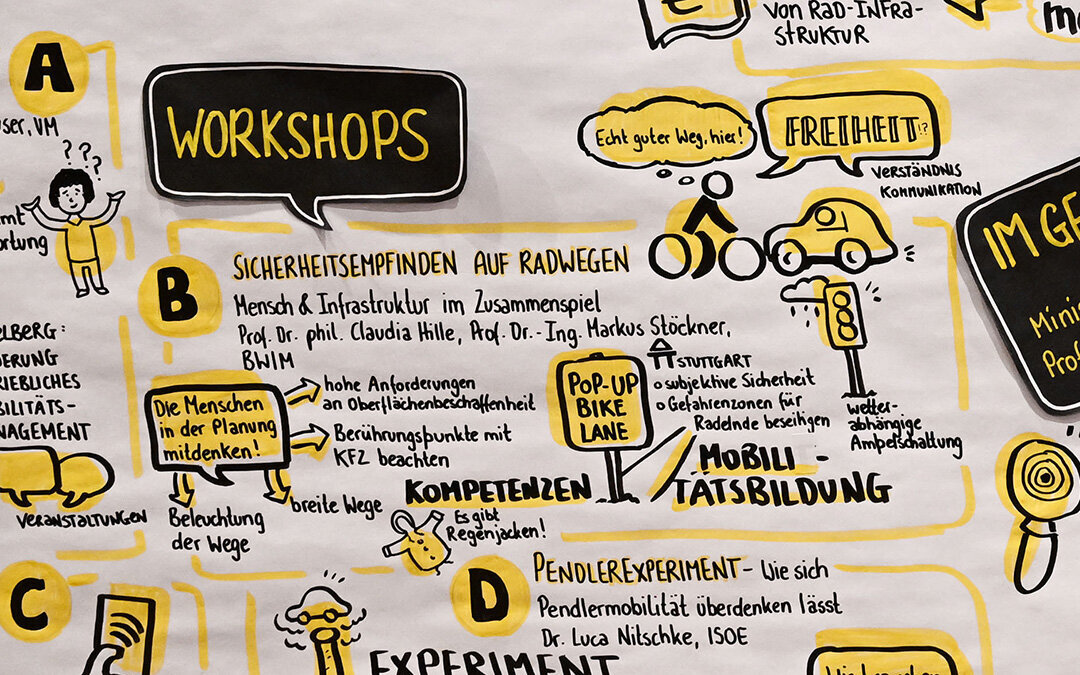 VON RAD-INFRA-
STRUKTUR
A
WORKSHOPS
???
Echt guter Weg, hier!
FREIHEIT!?
VERSTÄNDNIS
KOMMUNIKATION
B
SICHERHEITSEMPFINDEN AUF RADWEGEN
Mensch & Infrastruktur im Zusammenspiel
Prof. Dr. phil. Claudia Hille, Prof. Dr.-Ing. Markus Stöckner,
BWIM
Die Menschen
in der Planung
mitdenken!
hohe Anforderungen
an Oberflächenbeschaffenheit
Berührungspunkte mit
KFZ beachten
breite Wege
Beleuchtung
der Wege
POP-UP
BIKE
LANE
STUTTGART
o subjektive Sicherheit
o Gefahrenzonen für
Radelnde beseitigen
wetter-
abhängige
Ampelschaltung
KOMPETENZEN
MOBILI-
TÄTSBILDUNG
Es gibt
Regenjacken!
VERANSTALTUNGEN
C
D
PENDLEREXPERIMENT - Wie sich
Pendlermobilität überdenken lässt
Dr. Luca Nitschke, ISOE
EXPERIMENT
IM GE
Mini
Prof